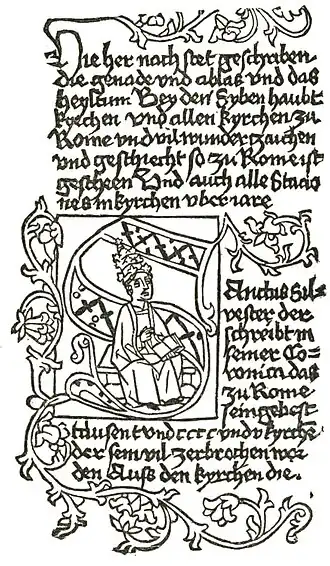 Hie her nach stet geschriben
die genade und ablas und das
heyltum Bey den Syben haubt
kyrchen und allen kyrchen zu
Rome und vil wunderzaichen
und geschiecht so zu Rome ist
gescheen Und auch alle Stacio
nes in kyrchen uber iare
SAnctus Sil-
vester der
schreibt in
seiner Co-
ronica das
zu Rome
sein gebest
tausent und cccc und v kyrche
der sein vil zerbrochen wor
den Auss den kyrchen die.